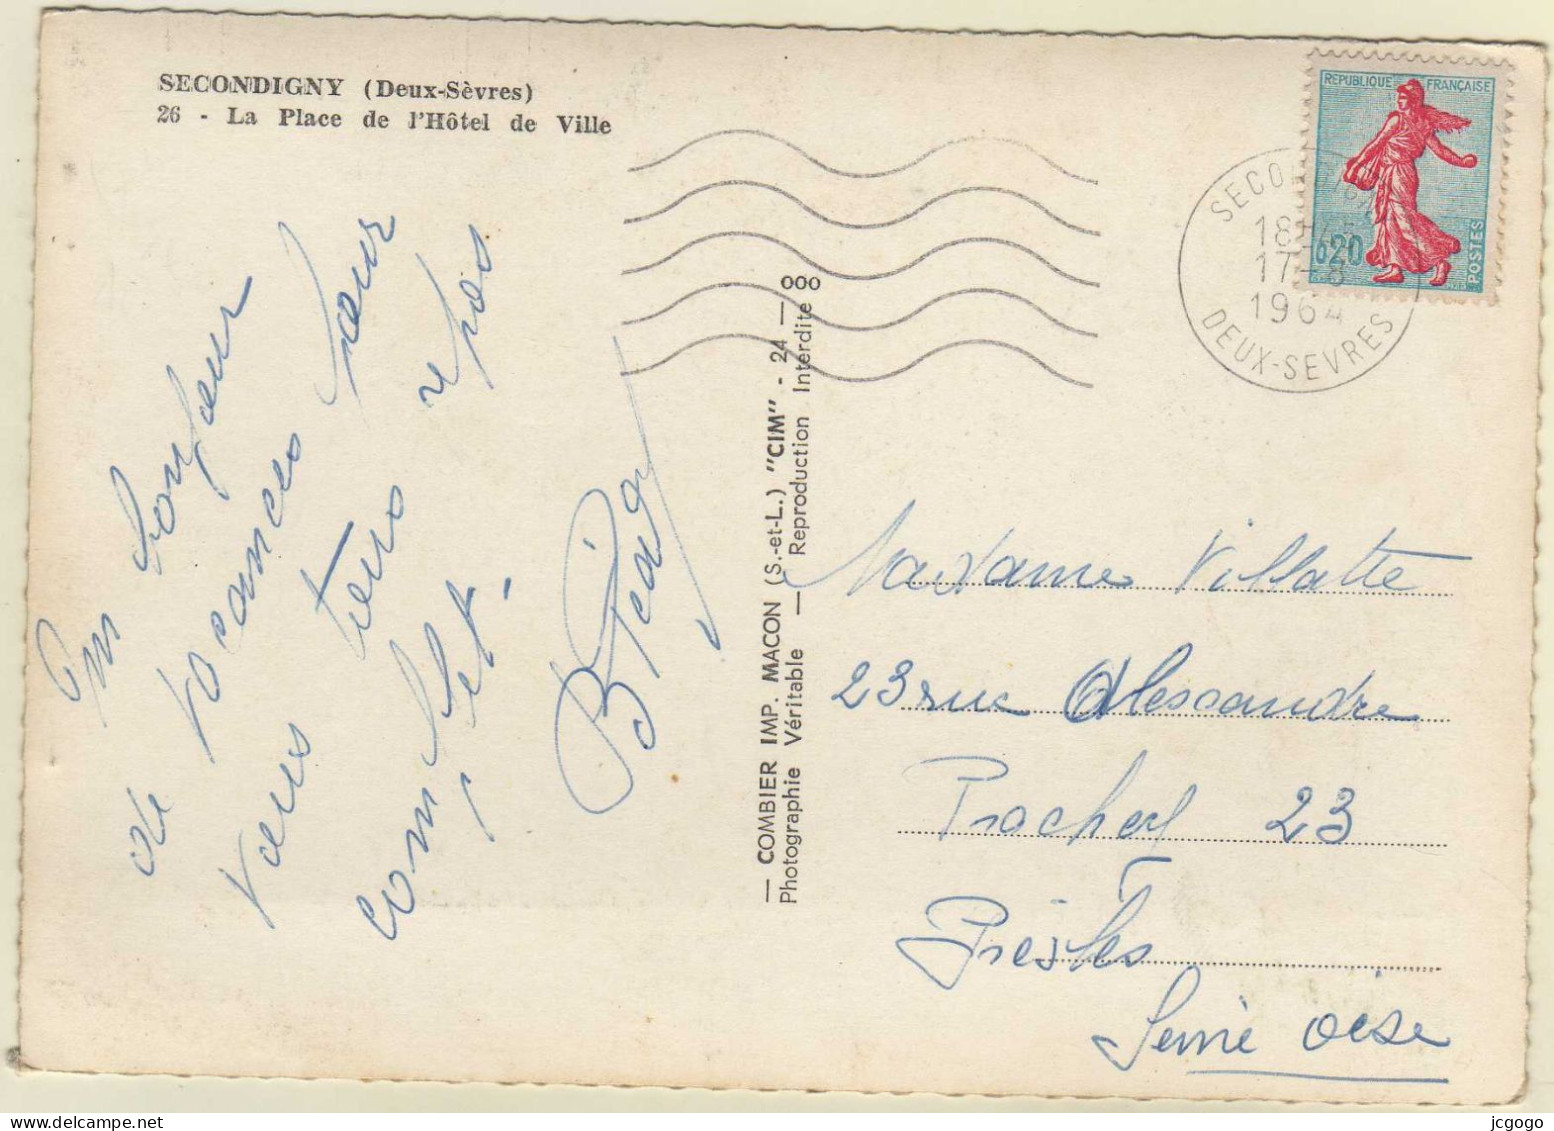 SECONDIGNY (Deux-Sèvres)
26 - La Place de l'Hôtel de Ville
REPUBLIQUE FRANÇAISE
0,20
POSTES
18H45
17-8
1964
DEUX-SEVRES
de vacances pour
vous repos
complet.
— COMBIER IMP. MACON (S.-et-L.) "CIM" - 24 — ooo
Photographie Véritable — Reproduction Interdite
Madame Villatte
23 rue Alessandre
Prachey 23
Presles
Seine oise
jcgogo